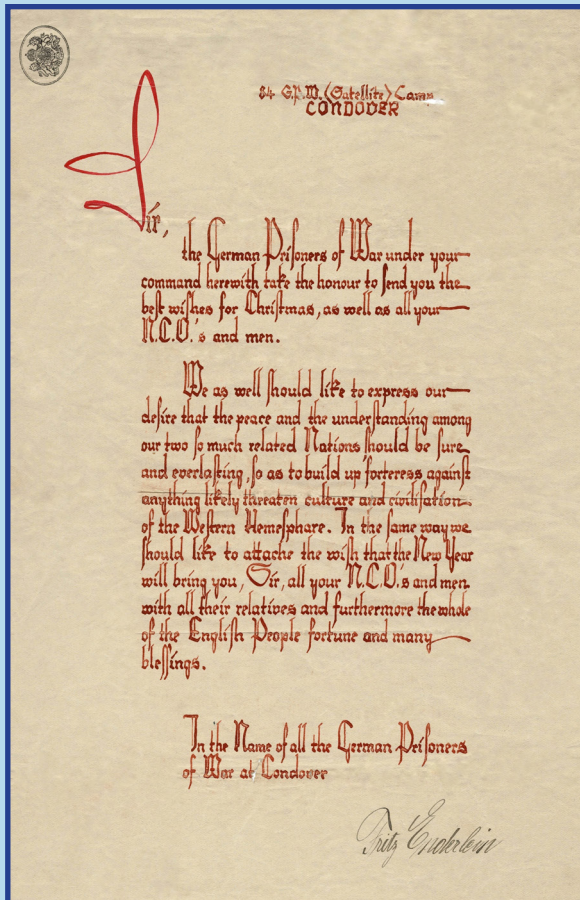 84 G.P.W. (Satellite) Camp
CONDOVER
Sir,
the German Prisoners of War under your
command herewith take the honour to send you the
best wishes for Christmas, as well as all your
N.C.O.'s and men.
We as well should like to express our
desire that the peace and the understanding among
our two so much related Nations should be sure
and everlasting, so as to build up forteress against
anything likely threaten culture and civilisation
of the Western Hemesphare. In the same way we
should like to attache the wish that the New Year
will bring you, Sir, all your N.C.O.'s and men
with all their relatives and furthermore the whole
of the English People fortune and many
blessings.
In the Name of all the German Prisoners
of War at Condover
Fritz Enderlein